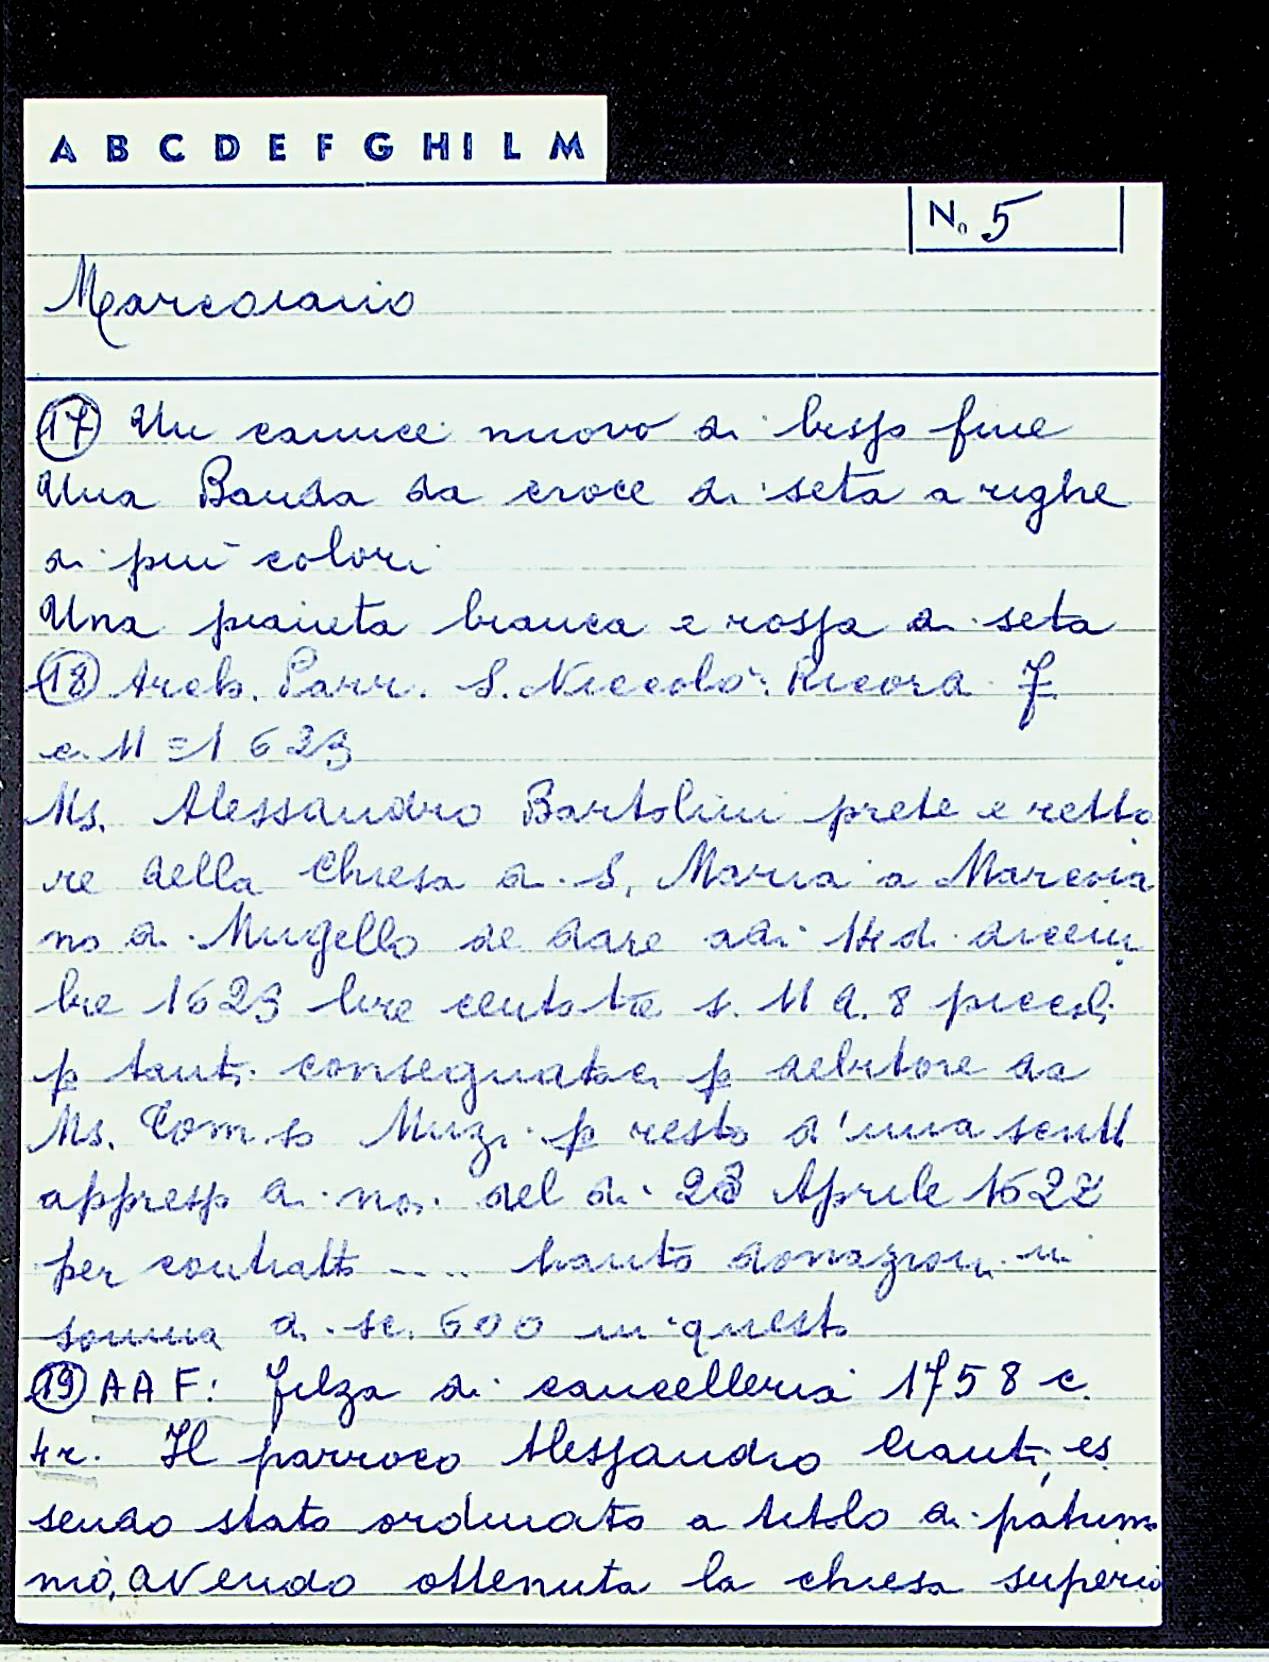 A B C D E F G H I L M
N. 5
Marcoiano
(17) Un camice nuovo di bisso fine
Una Banda da croce di seta a righe
di più colori
Una pianeta bianca e rossa di seta
(18) Arch. Parr. S. Niccolò: Ricord. 7
c. 11 = 1623
Ms. Alessandro Bartolini prete e retto
re della Chiesa di S. Maria a Marcoia
no di Mugello de dare adi 14 di dicem
bre 1623 lire centotre s. 11 d. 8 piccoli
p tanti consegnatoci p debitore da
Ms. Com so Muzi p resto d'una scritt
appresso di noi del di 23 Aprile 1622
per contratto .... hauto donazioni in
somma di sc. 600 in questo
(19) AAF: filza di cancelleria 1758 c.
4r. Il parroco Alessandro Cianti, es
sendo stato ordinato a titolo di patrimo
nio, avendo ottenuta la chiesa superio